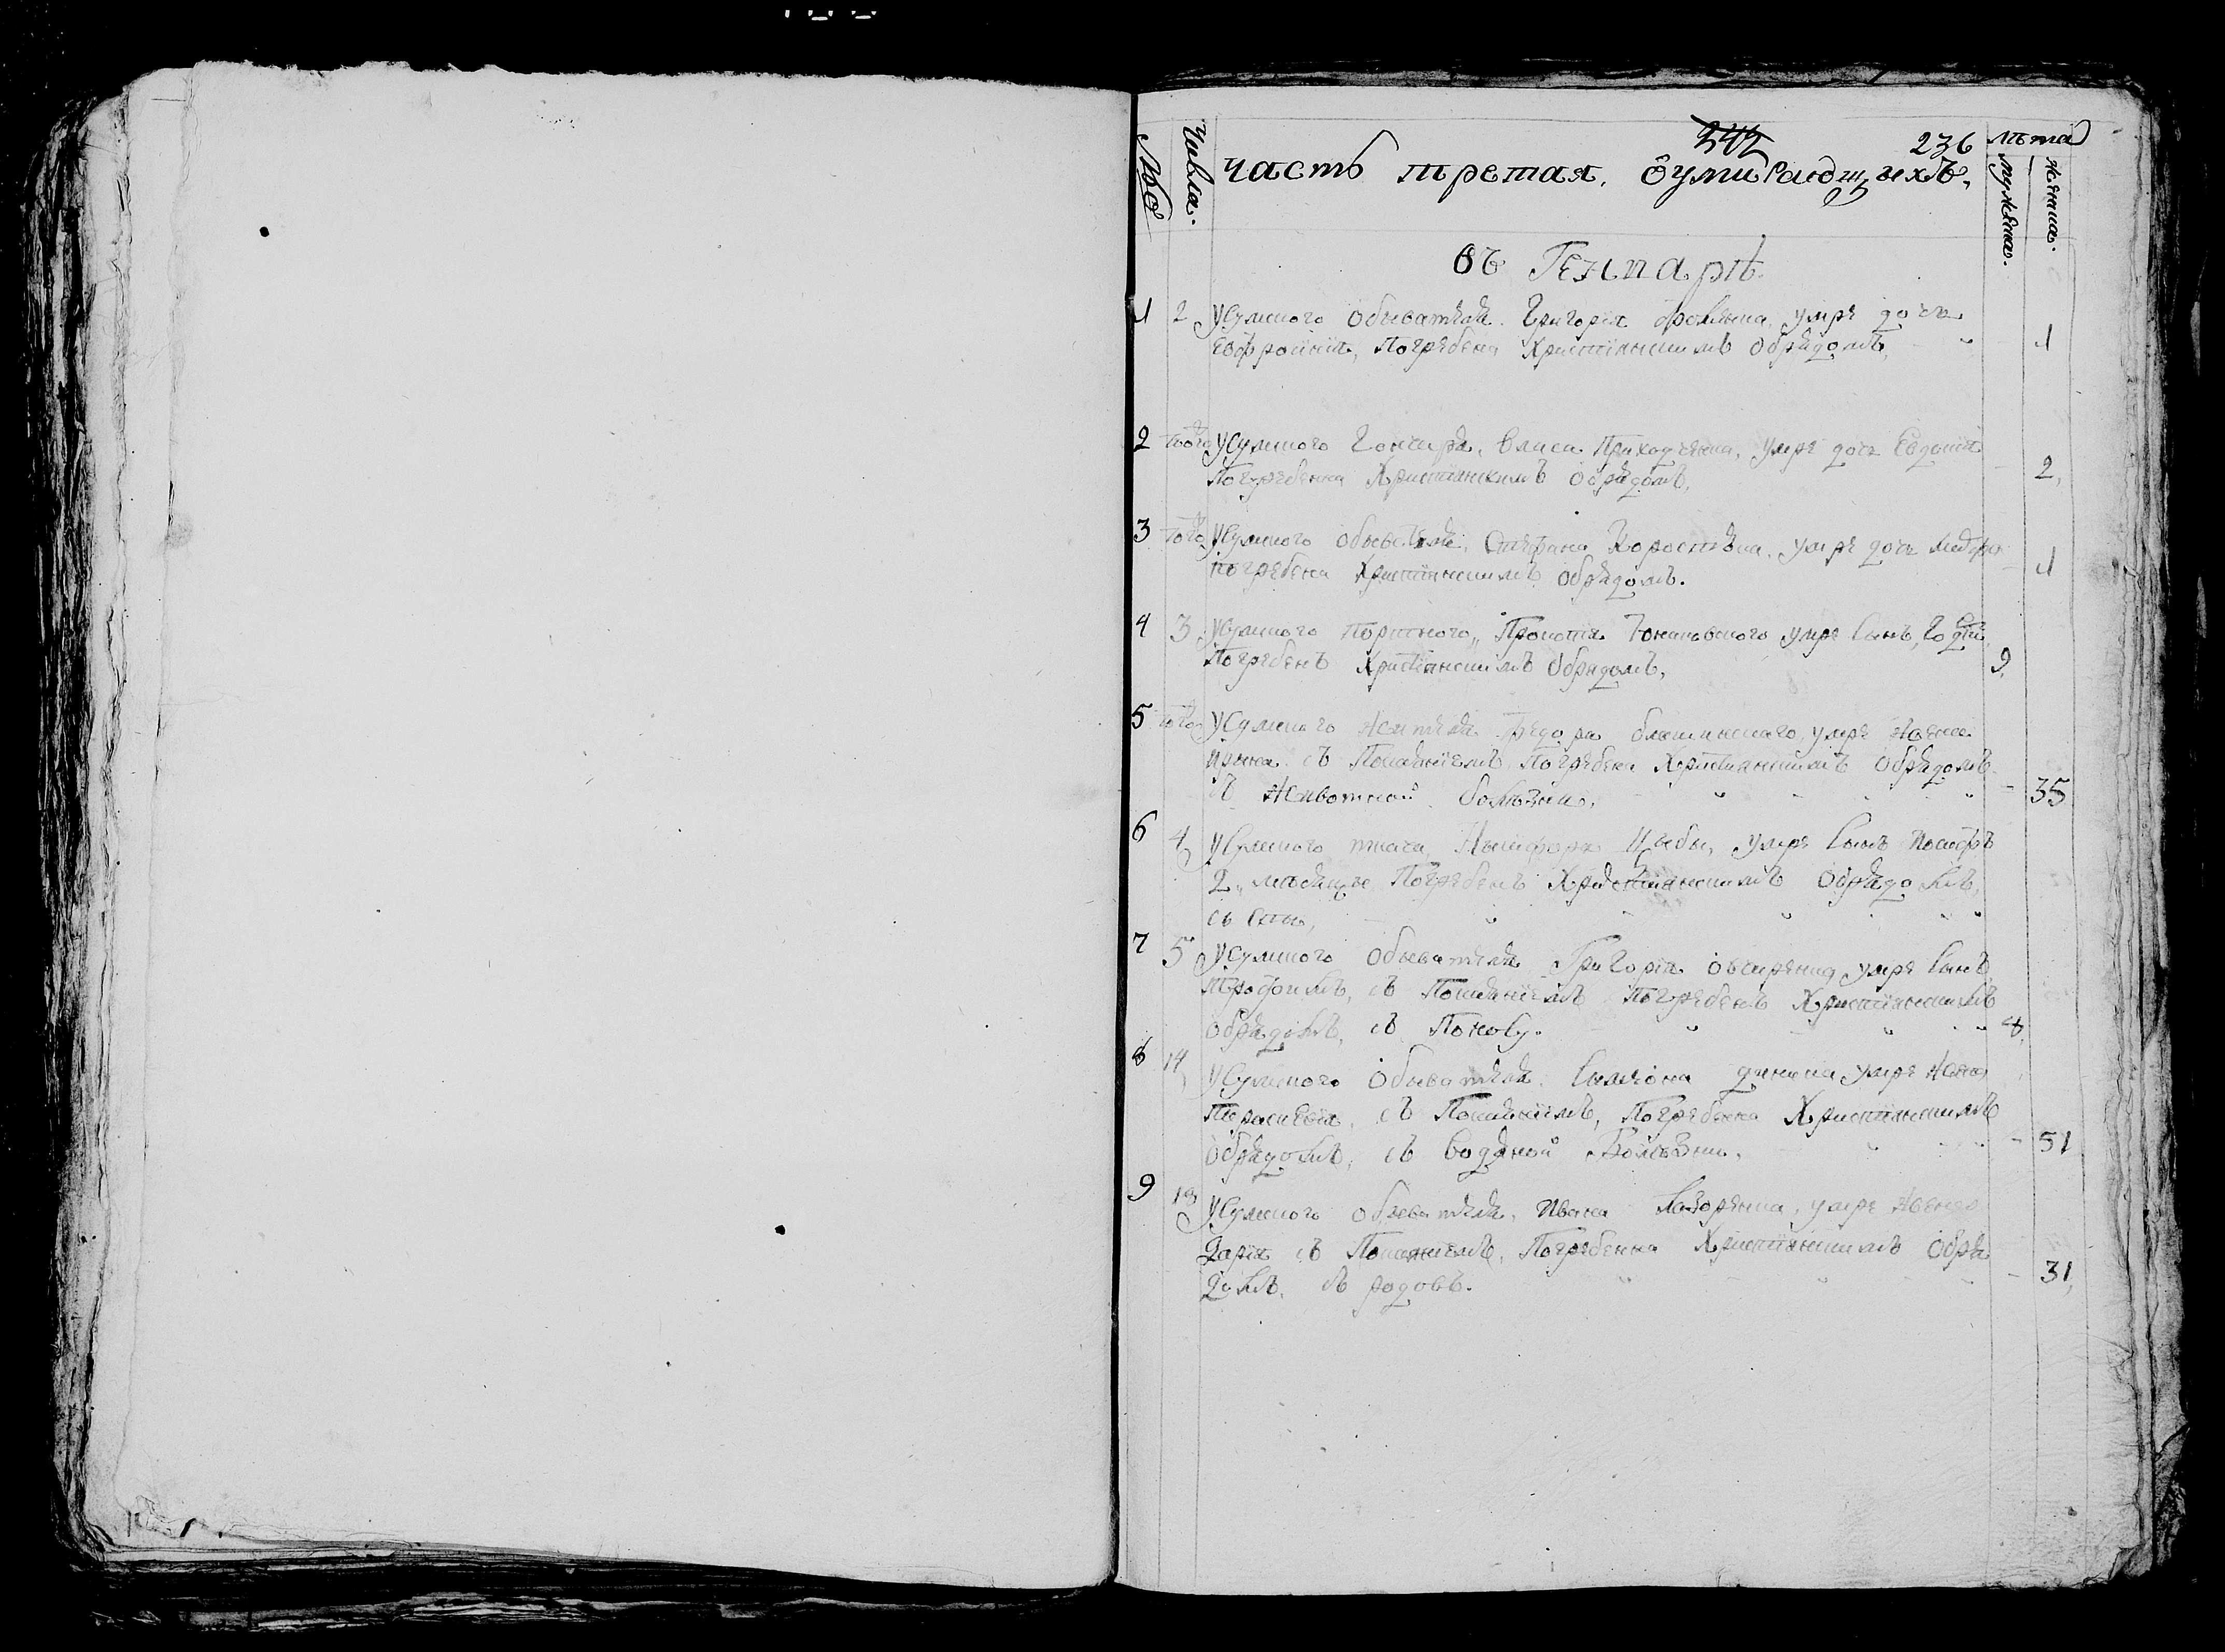 242 236
№
Числа.
часть третая, ѡумирающихъ,
лѣта
мужеска.
женска.
въ Генварѣ.
1 2 Усумского обывателя Григорія умре дочь
Евфросинія, погребена христіянскимъ обрядомъ, 1
2 того Усумского Гончара, Власа Приходченка, умре дочь Евдокія
Погребенна Христіанскимъ обрядомъ, 2,
3 того Усумского обывателя, Стефана умре дочь
погребена христіянскимъ обрядомъ. 1
4 3 Усумского Портного, Прокопія умре сынъ,
Погребенъ христіянскимъ обрядомъ, 9,
5 того Усумского жителя Федора умре жена
съ Покаяніемъ погребена христианскимъ обрядомъ
съ животной болѣзни, 35
6 4 Усумского ткача, Никифора Цыбы, умре сынъ Иосифъ
2, месяцъ Погребенъ христіянскимъ обрядомъ,
съ
7 5 Усумского обывателя Григорія умре сынъ
Трофимъ, съ Покаяніемъ погребенъ христіянскимъ
обрядомъ, съ Поносу. 8,
8 14, Усумского обывателя Симеона умре жена
Параскевія, съ Покаяніемъ, Погребенна христіянскимъ
обрядомъ, съ водяной болѣзни, 51
9 18 Усумского обывателя, Ивана умре жена
Дарія съ Покаяніемъ, Погребенна христіянскимъ обря
домъ, съ родовъ. 31,